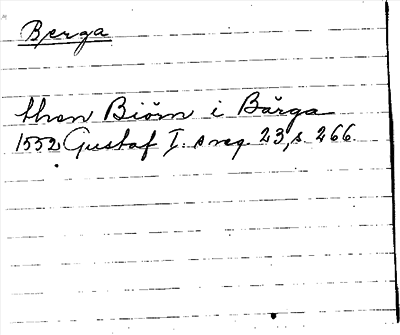 Berga
then Biörn i Bårga
1552 Gustaf I:s reg. 23, s. 266.